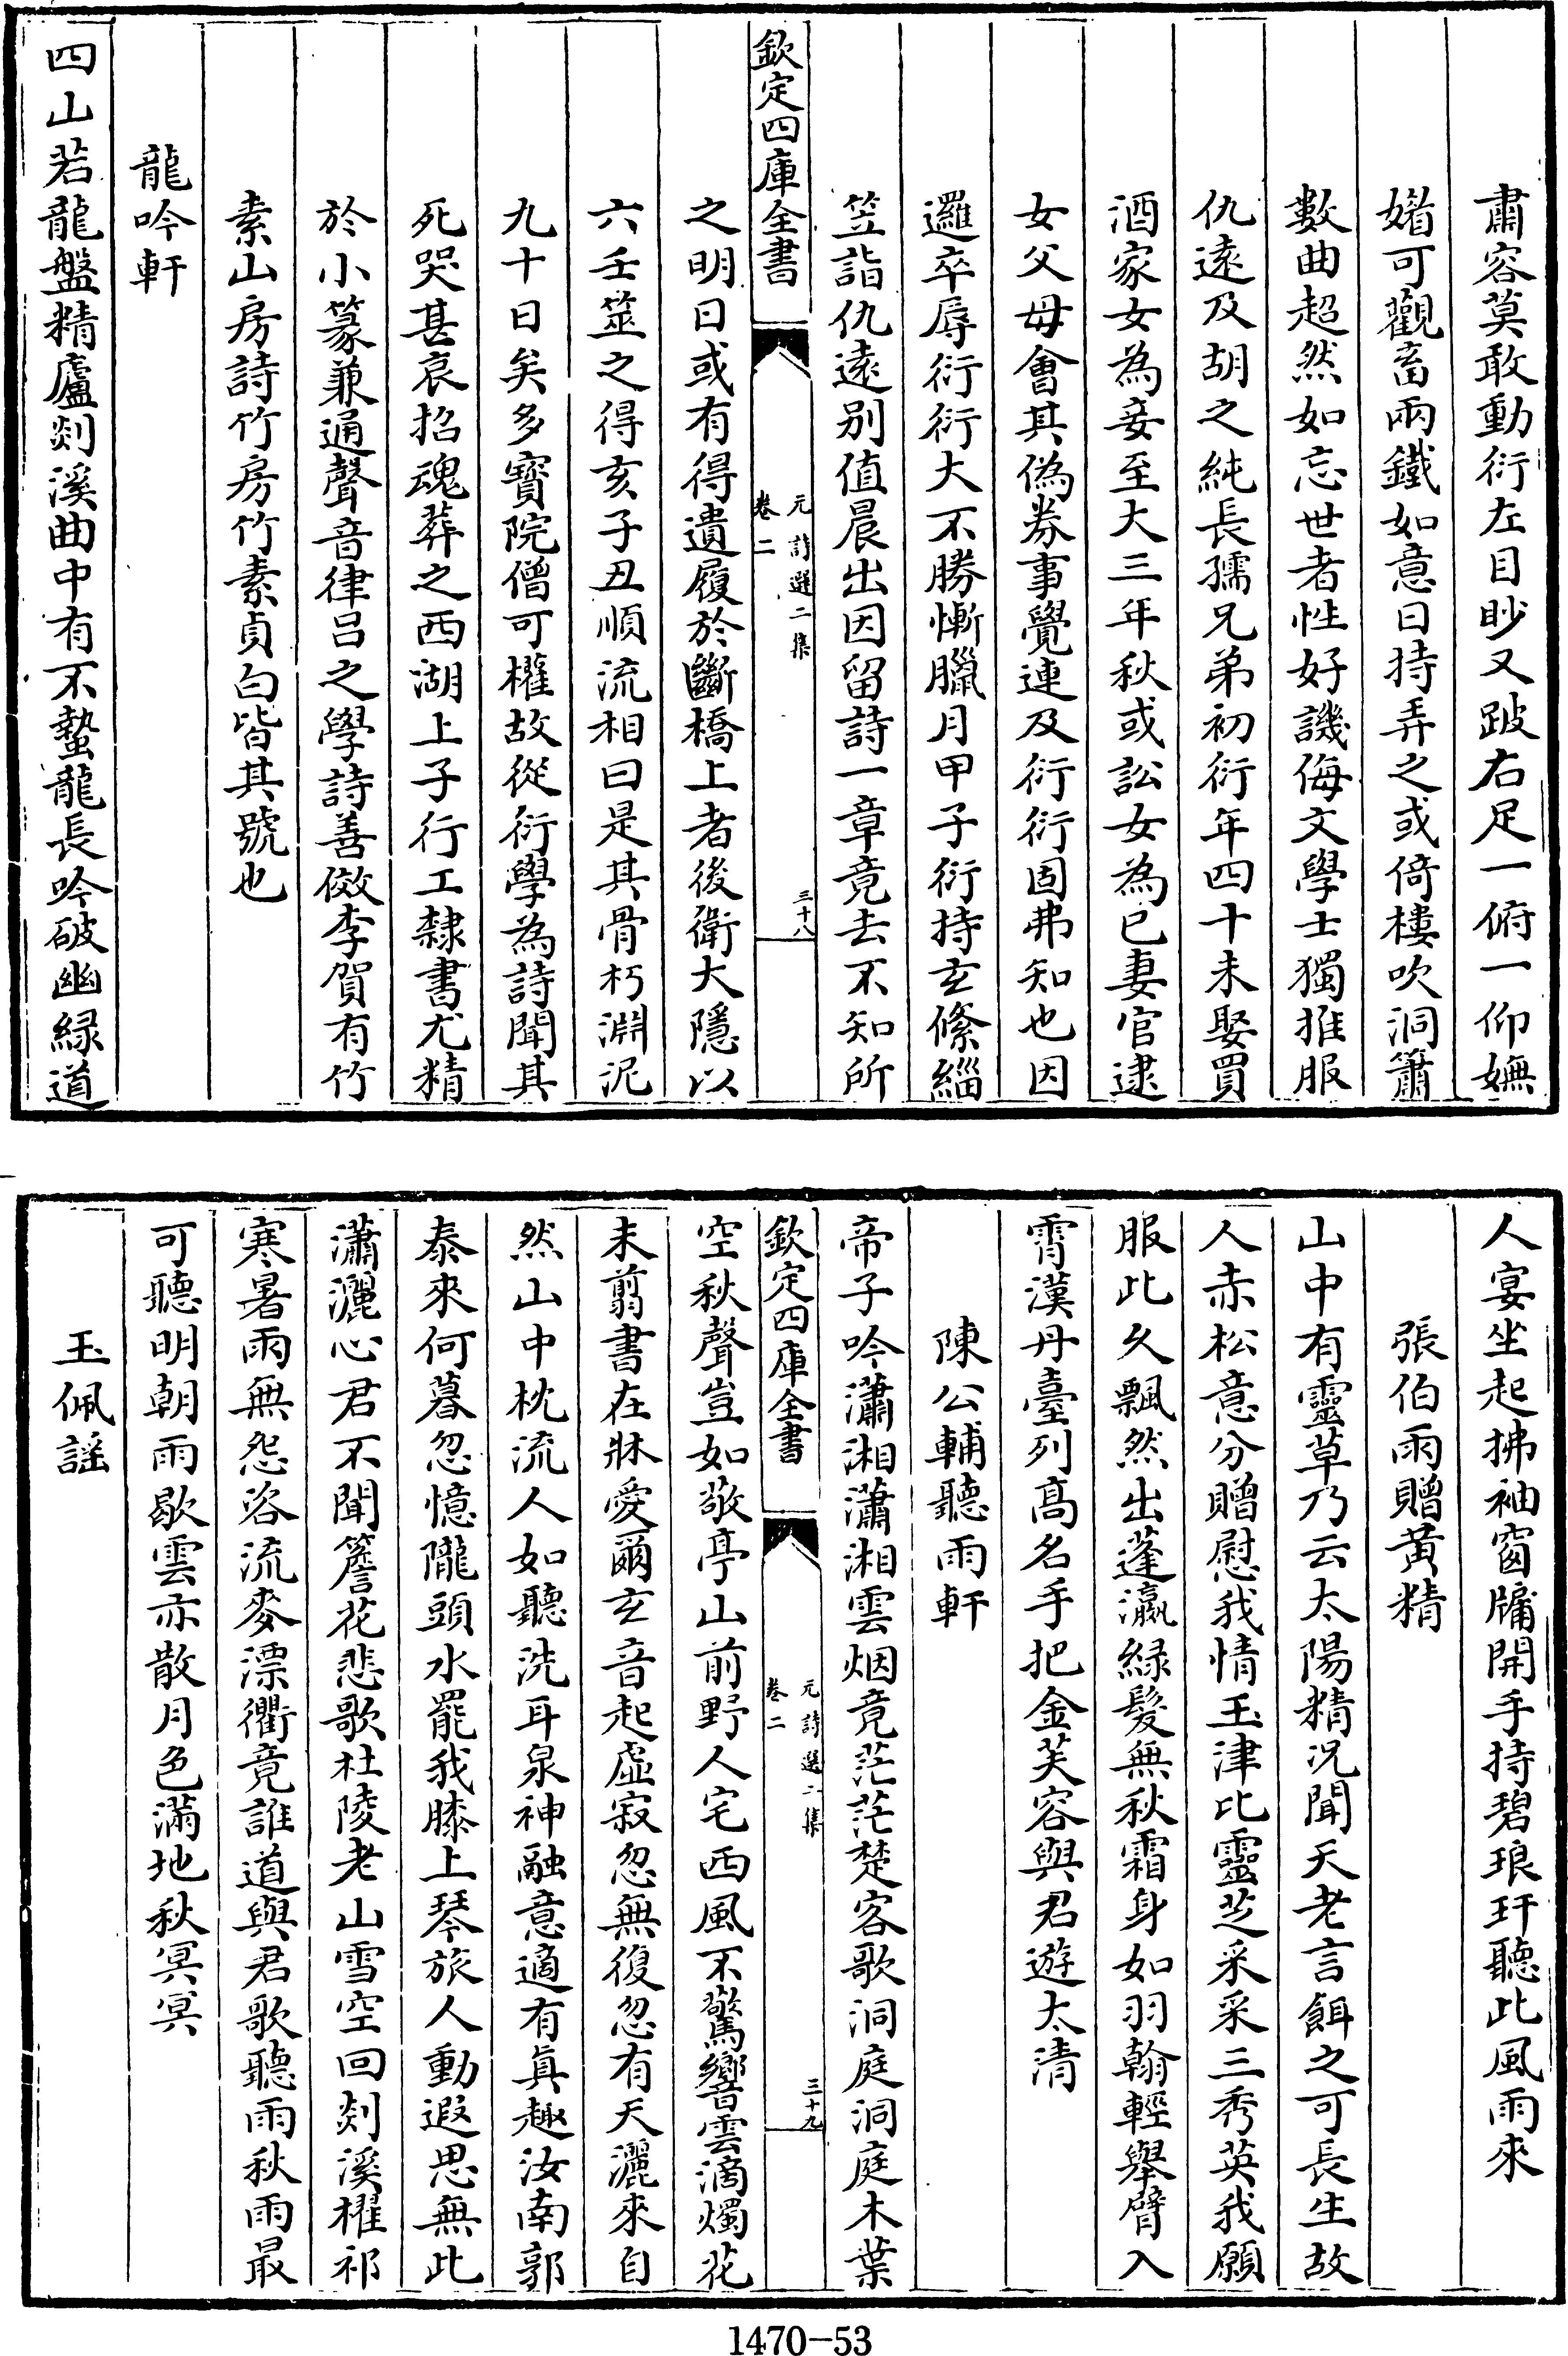 肅容莫敢動衍左目眇又跛右足一俯一仰嫵
媚可觀畜兩鐵如意日持弄之或倚樓吹洞簫
數曲超然如忘世者性好譏侮文學士獨推服
仇遠及胡之純長孺兄弟初衍年四十未娶買
酒家女為妾至大三年秋或訟女為已妻官逮
女父母會其偽券事覺連及衍衍固弗知也因
邏卒辱衍衍大不勝慚臘月甲子衍持玄絛緇
笠詣仇遠别值晨出因留詩一章竟去不知所
欽定四庫全書
元詩選二集
卷二
三十八
之明日或有得遺履於斷橋上者後衛大隱以
六壬筮之得亥子丑順流相曰是其骨朽淵泥
九十日矣多寶院僧可權故從衍學為詩聞其
死哭甚哀招魂葬之西湖上子行工隸書尤精
於小篆兼通聲音律吕之學詩善傚李賀有竹
素山房詩竹房竹素貞白皆其號也
龍吟軒
四山若龍盤精廬剡溪曲中有不蟄龍長吟破幽緑道
人宴坐起拂袖窗牖開手持碧琅玕聽此風雨來
張伯雨贈黄精
山中有靈草乃云太陽精况聞天老言餌之可長生故
人赤松意分贈慰我情玉津比靈芝采采三秀英我願
服此久飄然出蓬瀛緑髪無秋霜身如羽翰輕舉臂入
霄漢丹臺列髙名手把金芙容與君遊太清
陳公輔聽雨軒
帝子吟瀟湘瀟湘雲烟竟茫茫楚客歌洞庭洞庭木葉
欽定四庫全書
元詩選二集
卷二
三十九
空秋聲豈如敬亭山前野人宅西風不驚響雲滴燭花
未翦書在牀愛爾玄音起虛寂忽無復忽有天灑來自
然山中枕流人如聽洗耳泉神融意適有真趣汝南郭
泰來何暮忽憶隴頭水罷我膝上琴旅人動遐思無此
瀟灑心君不聞簷花悲歌杜陵老山雪空回剡溪櫂祁
寒暑雨無怨咨流麥漂衢竟誰道與君歌聽雨秋雨最
可聽明朝雨歇雲亦散月色滿地秋冥冥
玉佩謡
1470-53